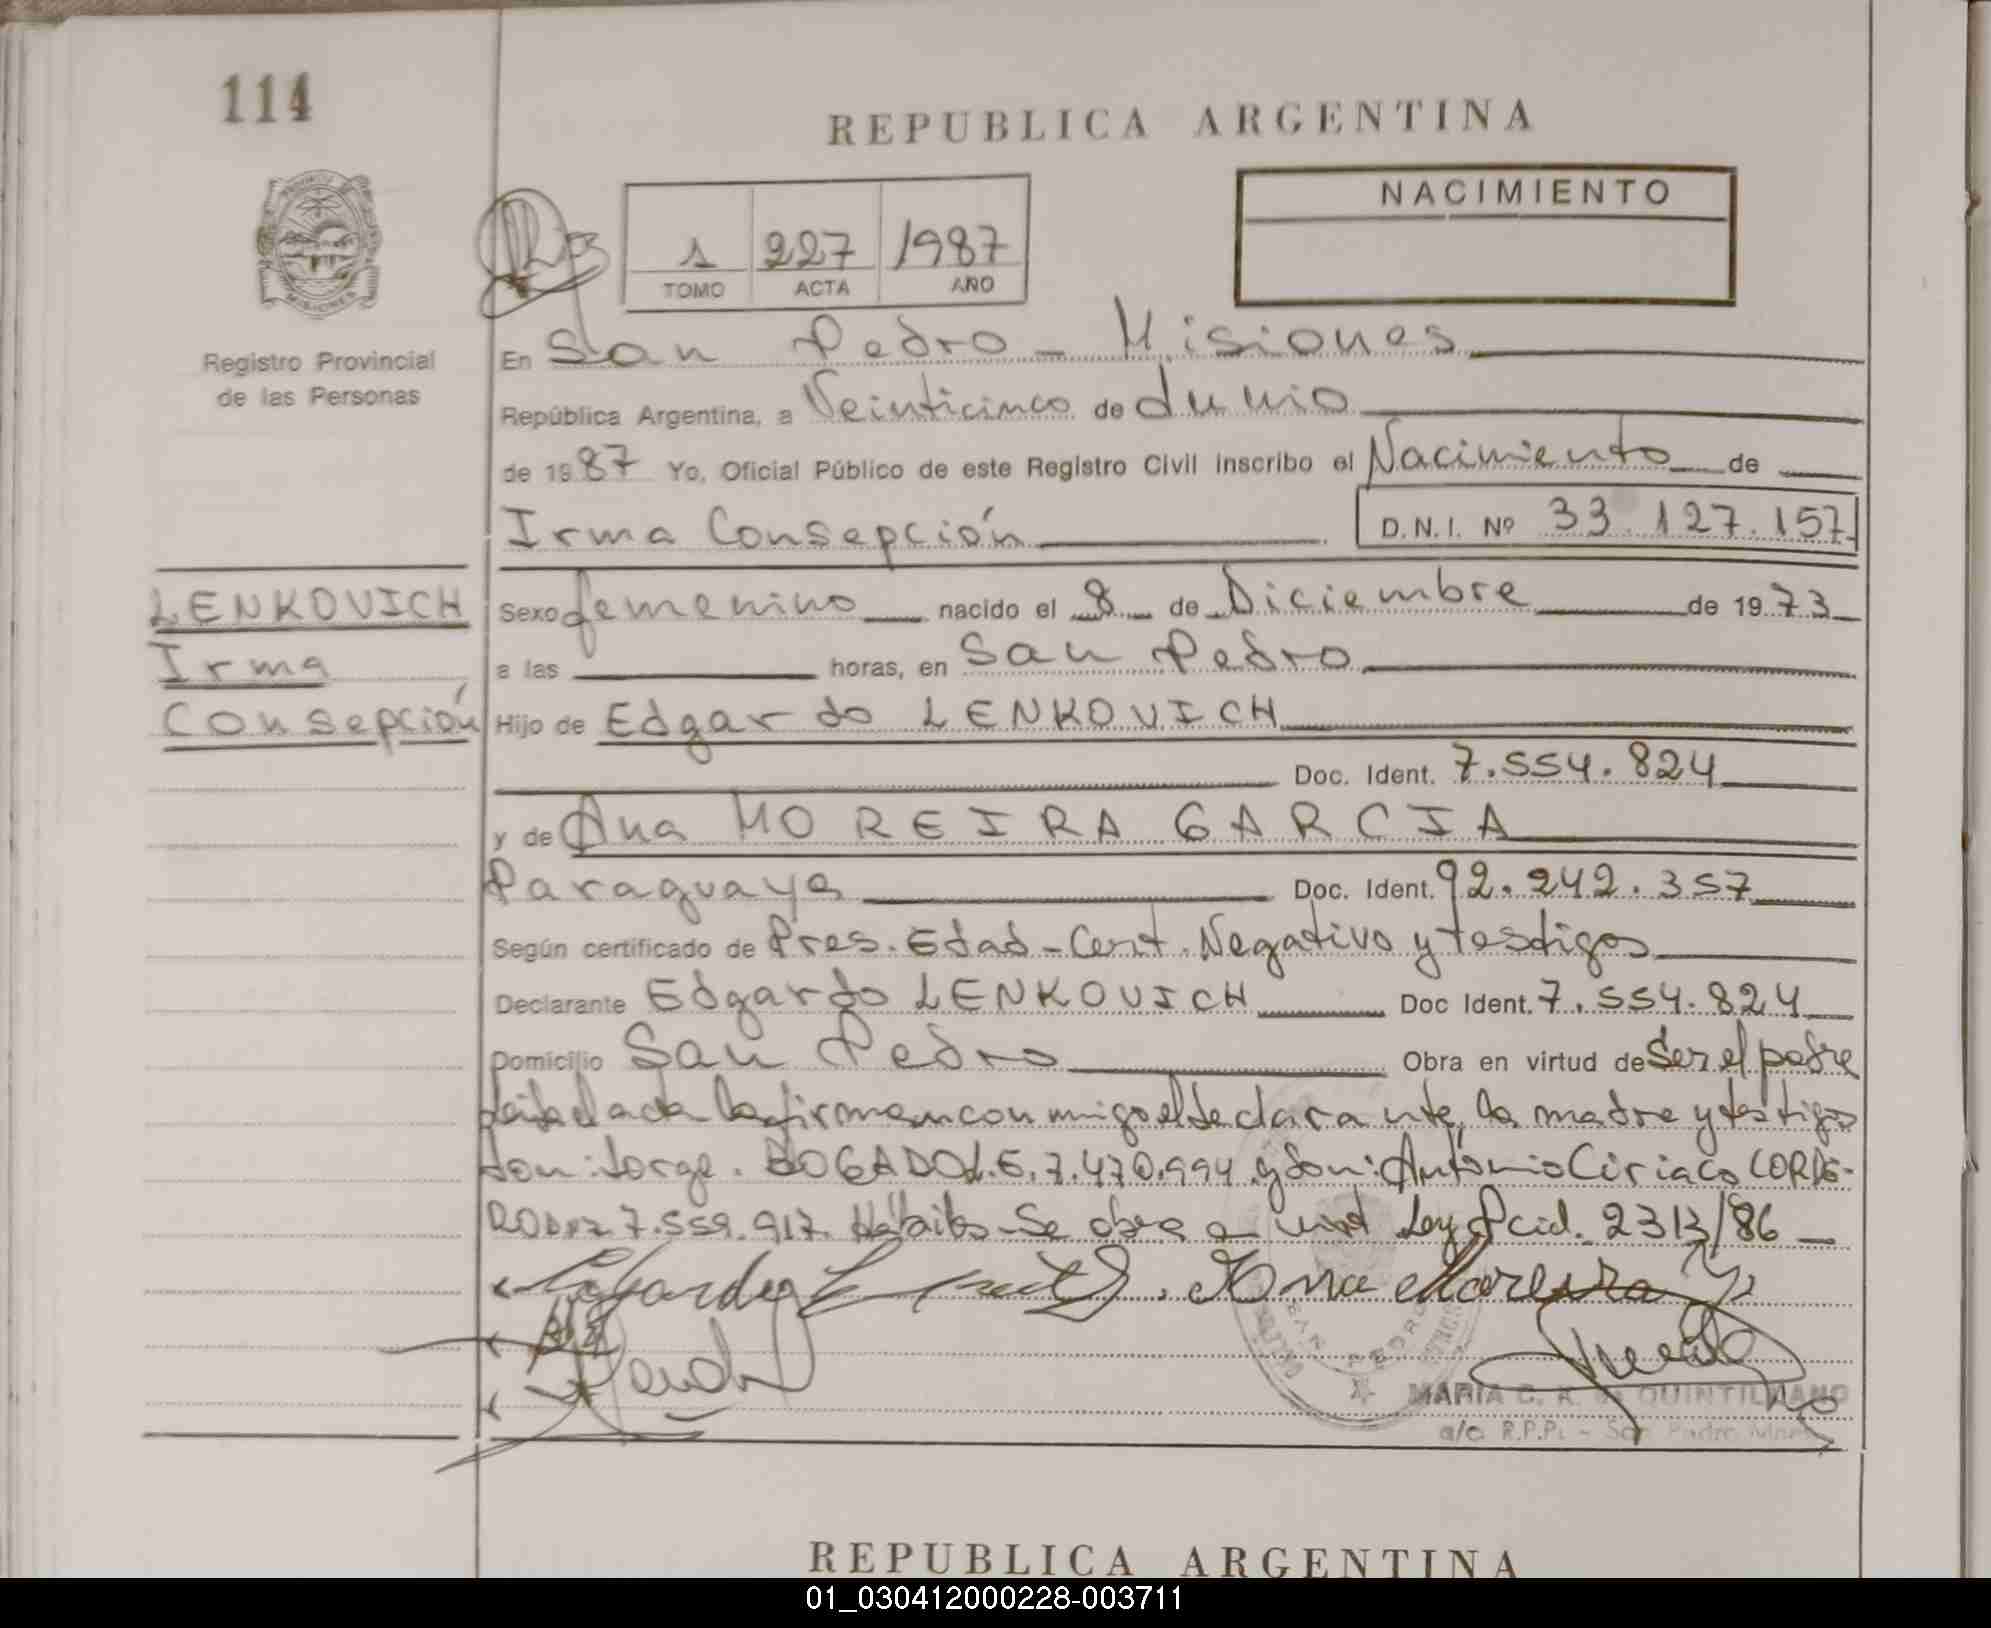 114
REPUBLICA ARGENTINA
NACIMIENTO
1 227 1987
TOMO ACTA AÑO
MISIONES
Registro Provincial
de las Personas
En San Pedro - Misiones
República Argentina, a Veinticinco de Junio
de 1987 Yo, Oficial Público de este Registro Civil inscribo el Nacimiento de
Irma Consepción D.N.I. Nº 33.127.157
LENKOVICH
Irma
Consepción
Sexo femenino nacido el 8 de Diciembre de 1973
a las horas, en San Pedro
Hijo de Edgardo LENKOVICH
Doc. Ident. 7.554.824
y de Ana MOREIRA GARCIA
Paraguaya Doc. Ident. 92.242.357
Según certificado de Pres. Edad - Cert. Negativo y testigos
Declarante Edgardo LENKOVICH Doc Ident. 7.554.824
Domicilio San Pedro Obra en virtud de Ser el padre
leida el acta la firman conmigo el declarante, la madre y testigos
don: Jorge BOGADO L.E. 7.470.994 y don: Antonio Ciriaco CORDO-
7.559.917 Se obra en Ley Pcial. 2313/86
Ana Moreira
SAN PEDRO
MARIA C. R. de QUINTILIANO
a/c R.P.P. - San Pedro Mnes.
REPUBLICA ARGENTINA
01_030412000228-003711